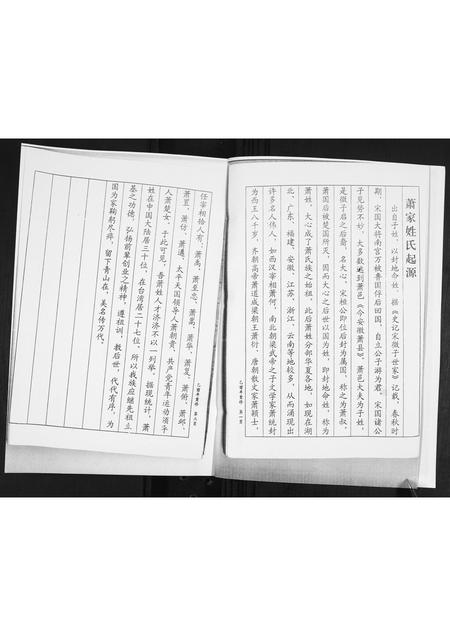 萧家姓氏起源
出自子姓,以封地命姓。据《史记宋微子世家》记载,春秋时
期,宋国大将南宫万被鲁国俘后回国,自立公子游为君。宋国诸公
子见势不妙,大多数逃到萧邑《今安徽萧县》。萧邑大夫为子姓,
是微子启之后裔,名大心,宋桓公即位后封为属国,称之为萧叔。
萧国后被楚国所灭,因而大心之后世以国为姓,即封地命姓,称为
萧姓,大心成了萧氏族之始祖,此后萧姓分部华夏各地,如现在湖
北、广东、福建、安徽、江苏、浙江、云南等地较多,从而涌现出
许多名人伟人,如西汉宰相萧何,南北朝梁武帝之子文学家萧统封
为西王八千岁,齐朝高帝萧道成梁朝王萧衍,唐朝散文家萧颖士,
乙酉年重修 第一页
任宰相拾人有:萧瑀、萧至忠、萧嵩、萧华、萧复、萧俯、萧邺、
萧寘、萧仿、萧遘,太平天国领导人萧朝贵,共产党青年运动活平
人萧楚女,于此可见,吾萧姓人才济济不以一列举,据现统计,萧
姓在中国大陆居三十位,在台湾居二十七位。所以我族应继先祖立
基之功德,弘扬前辈创业之精神,遵祖训,教后世,代代有序,为
国为家鞠躬尽瘁,留下青山在,美名传万代。
乙酉年重修